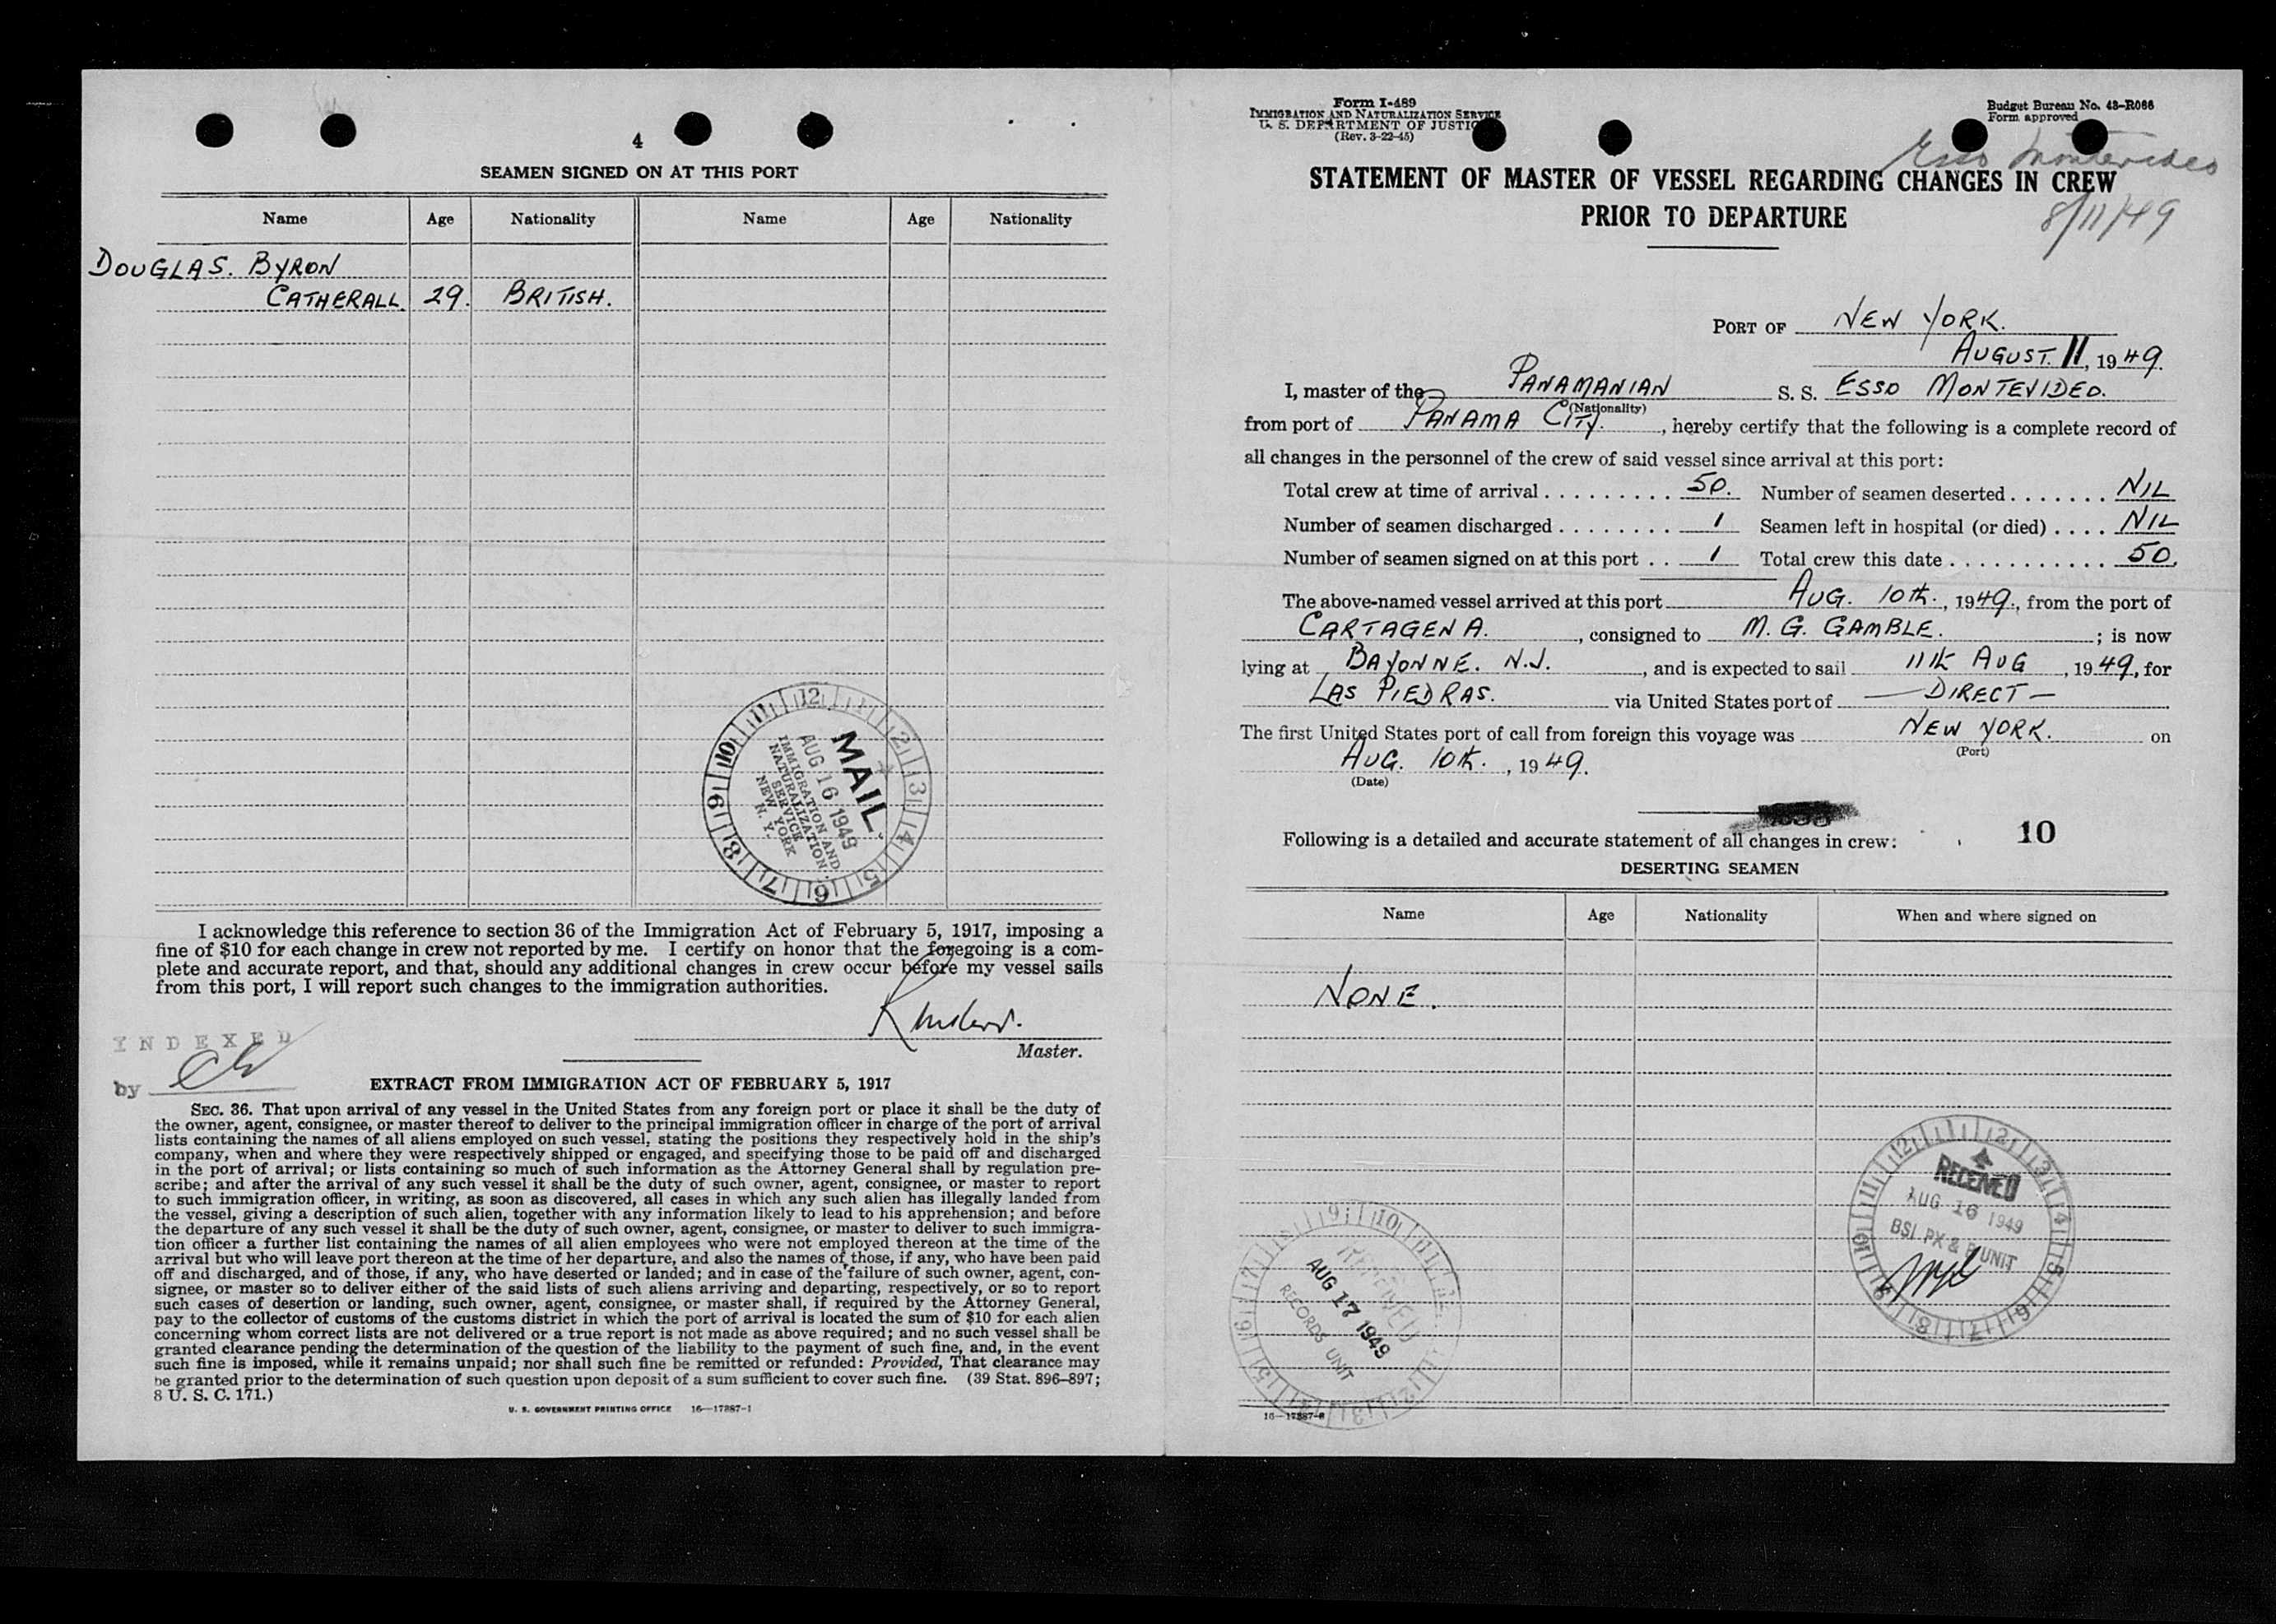 4
SEAMEN SIGNED ON AT THIS PORT
Name Age Nationality Name Age Nationality
DOUGLAS. BYRON
CATHERALL. 29. BRITISH.
12 1 2 3 4 5 6 7 8 9 10 11
MAIL
AUG 16 1949
IMMIGRATION AND
NATURALIZATION
SERVICE
NEW YORK
N. Y.
I acknowledge this reference to section 36 of the Immigration Act of February 5, 1917, imposing a
fine of $10 for each change in crew not reported by me. I certify on honor that the foregoing is a com-
plete and accurate report, and that, should any additional changes in crew occur before my vessel sails
from this port, I will report such changes to the immigration authorities.
Master.
INDEXED
by
EXTRACT FROM IMMIGRATION ACT OF FEBRUARY 5, 1917
SEC. 36. That upon arrival of any vessel in the United States from any foreign port or place it shall be the duty of
the owner, agent, consignee, or master thereof to deliver to the principal immigration officer in charge of the port of arrival
lists containing the names of all aliens employed on such vessel, stating the positions they respectively hold in the ship's
company, when and where they were respectively shipped or engaged, and specifying those to be paid off and discharged
in the port of arrival; or lists containing so much of such information as the Attorney General shall by regulation pre-
scribe; and after the arrival of any such vessel it shall be the duty of such owner, agent, consignee, or master to report
to such immigration officer, in writing, as soon as discovered, all cases in which any such alien has illegally landed from
the vessel, giving a description of such alien, together with any information likely to lead to his apprehension; and before
the departure of any such vessel it shall be the duty of such owner, agent, consignee, or master to deliver to such immigra-
tion officer a further list containing the names of all alien employees who were not employed thereon at the time of the
arrival but who will leave port thereon at the time of her departure, and also the names of those, if any, who have been paid
off and discharged, and of those, if any, who have deserted or landed; and in case of the failure of such owner, agent, con-
signee, or master so to deliver either of the said lists of such aliens arriving and departing, respectively, or so to report
such cases of desertion or landing, such owner, agent, consignee, or master shall, if required by the Attorney General,
pay to the collector of customs of the customs district in which the port of arrival is located the sum of $10 for each alien
concerning whom correct lists are not delivered or a true report is not made as above required; and no such vessel shall be
granted clearance pending the determination of the question of the liability to the payment of such fine, and, in the event
such fine is imposed, while it remains unpaid; nor shall such fine be remitted or refunded: Provided, That clearance may
be granted prior to the determination of such question upon deposit of a sum sufficient to cover such fine. (39 Stat. 896–897;
8 U. S. C. 171.)
U. S. GOVERNMENT PRINTING OFFICE 16—17887-1
Form I-489
IMMIGRATION AND NATURALIZATION SERVICE
U. S. DEPARTMENT OF JUSTICE
(Rev. 3-22-45)
Budget Bureau No. 43-R066
Form approved
Esso Montevideo
8/11/49
STATEMENT OF MASTER OF VESSEL REGARDING CHANGES IN CREW
PRIOR TO DEPARTURE
PORT OF NEW YORK.
AUGUST. 11, 1949.
I, master of the PANAMANIAN S. S. ESSO MONTEVIDEO.
(Nationality)
from port of PANAMA CITY., hereby certify that the following is a complete record of
all changes in the personnel of the crew of said vessel since arrival at this port:
Total crew at time of arrival . . . . . . . . . 50. Number of seamen deserted . . . . . . . NIL
Number of seamen discharged . . . . . . . . 1 Seamen left in hospital (or died) . . . . NIL
Number of seamen signed on at this port . . 1 Total crew this date . . . . . . . . . . . 50.
The above-named vessel arrived at this port AUG. 10th., 1949., from the port of
CARTAGENA., consigned to M. G. GAMBLE. ; is now
lying at BAYONNE. N.J., and is expected to sail 11th AUG, 1949, for
LAS PIEDRAS. via United States port of — DIRECT —
The first United States port of call from foreign this voyage was NEW YORK. on
(Port)
AUG. 10th., 1949.
(Date)
Following is a detailed and accurate statement of all changes in crew: 10
DESERTING SEAMEN
Name Age Nationality When and where signed on
NONE.
12 1 2 3 4 5 6 7 8 9 10 11
RECEIVED
AUG 16 1949
BSI PX & P UNIT
RECEIVED
AUG 17 1949
RECORDS UNIT